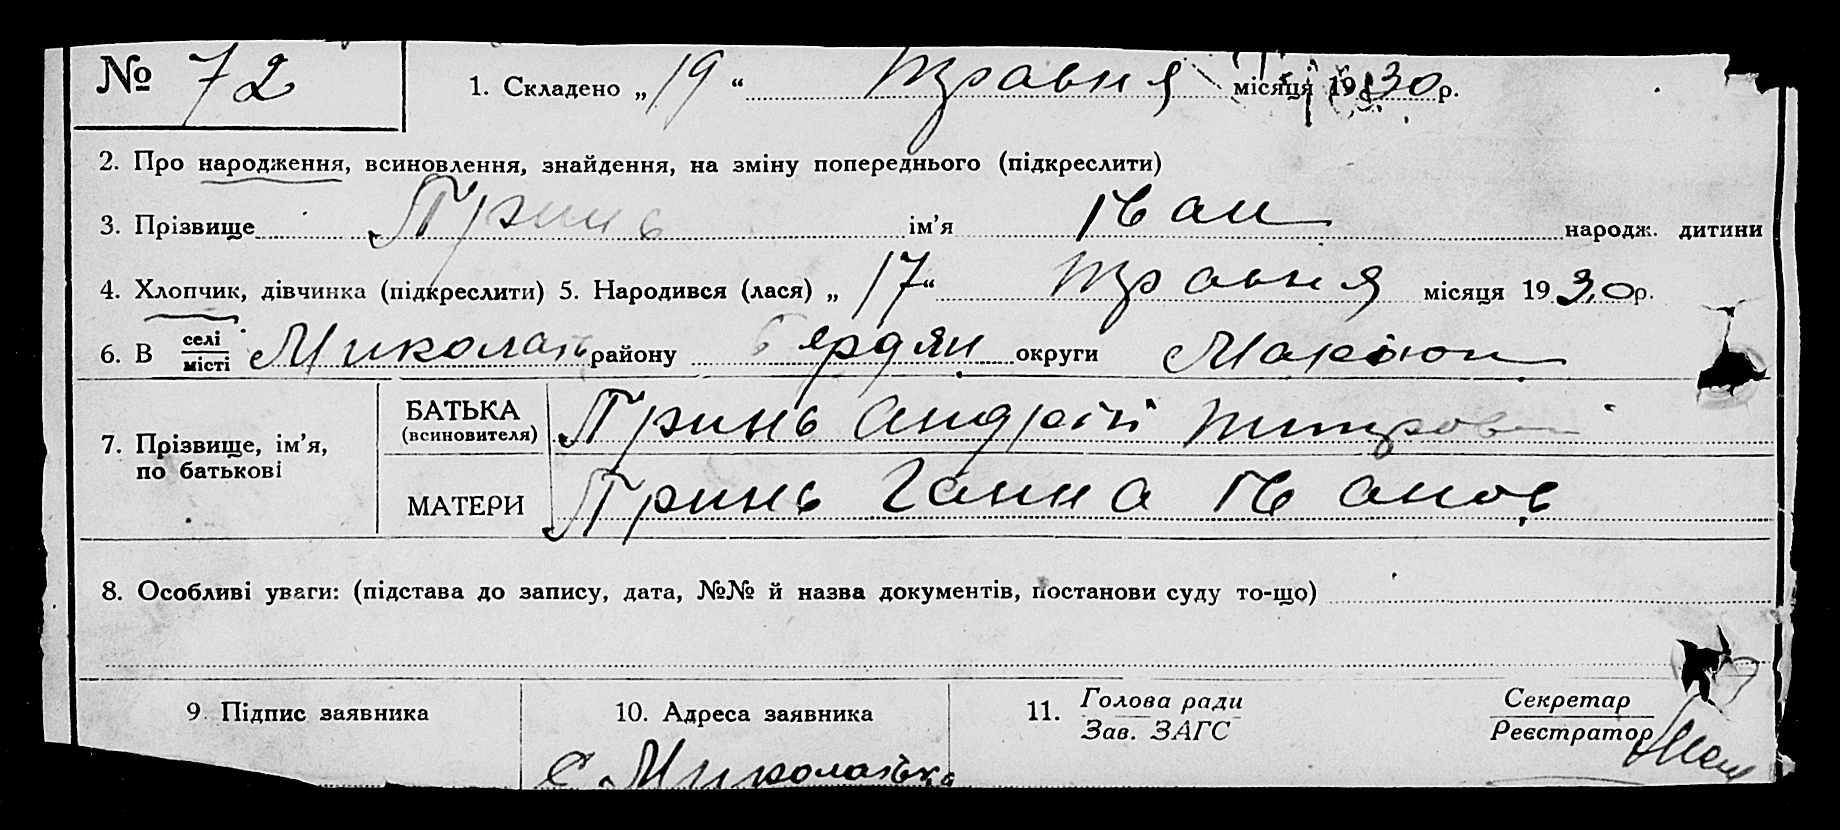 № 72 1. Складено „19“ травня місяця 1930 р.
2. Про народження, всиновлення, знайдення, на зміну попереднього (підкреслити)
3. Прізвище Гринь ім’я Іван народж. дитини
4. Хлопчик, дівчинка (підкреслити) 5. Народився (лася) „17“ травня місяця 1930 р.
6. В селі/місті Миколаїв району Бердян округи Маріюп
7. Прізвище, ім’я, по батькові БАТЬКА (всиновителя) Гринь Андрій
МАТЕРИ Гринь Ганна Іванов
8. Особливі уваги: (підстава до запису, дата, №№ й назва документів, постанови суду то-що)
9. Підпис заявника 10. Адреса заявника 11. Голова ради Секретар
Зав. ЗАГС Реєстратор
с. Миколаївка